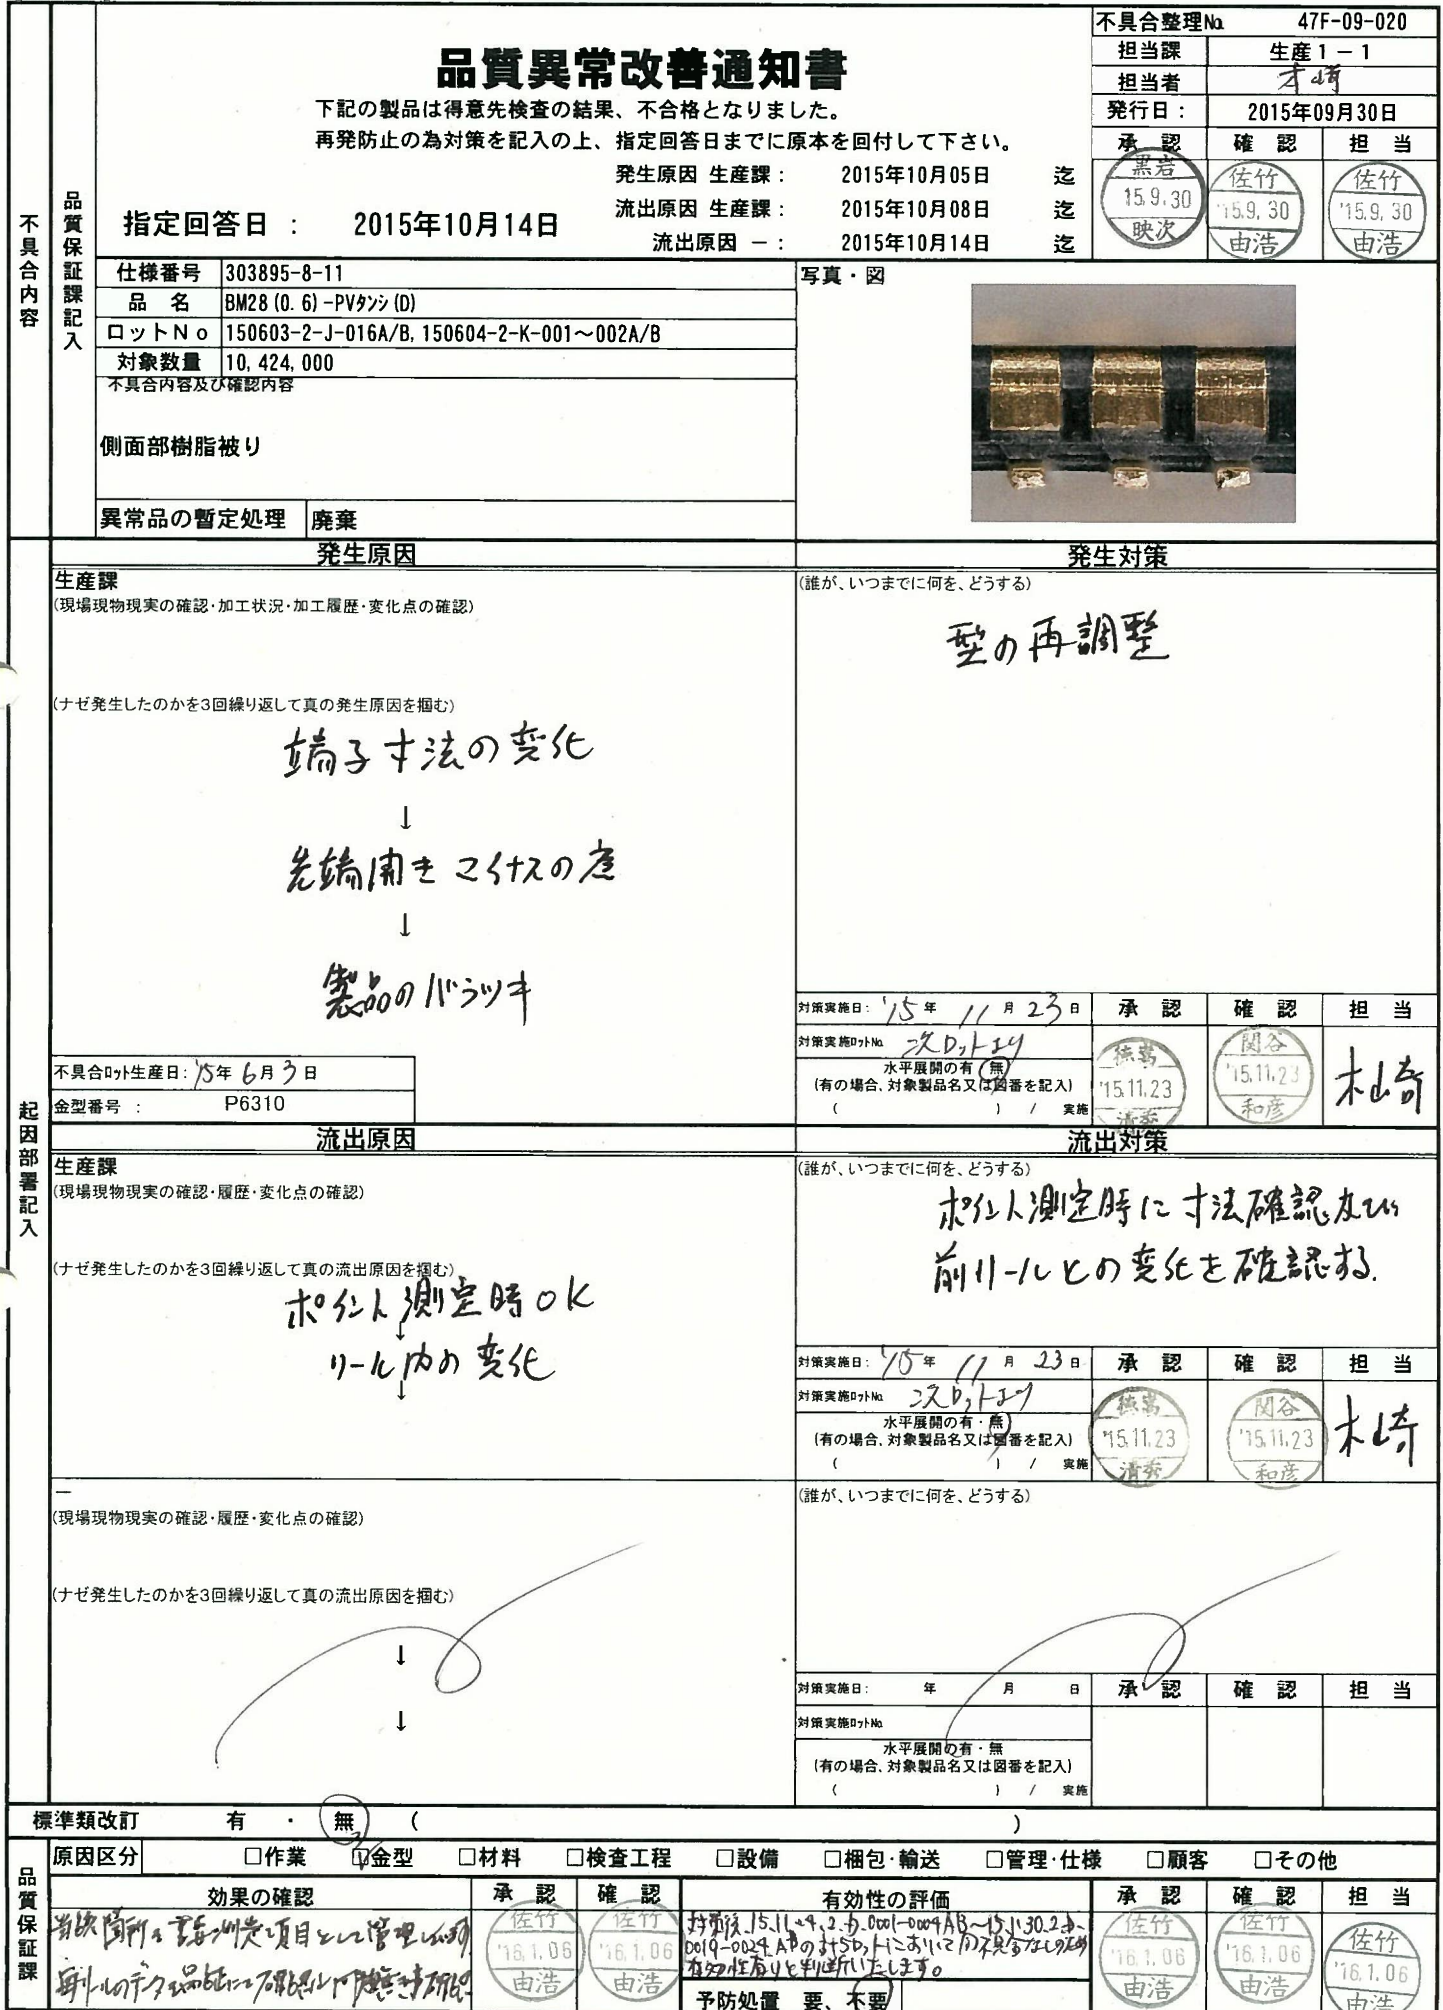 不具合整理No. 47F-09-020
担当課 生産1-1
担当者 木崎
発行日: 2015年09月30日
承認 確認 担当
黒岩 15.9.30 映次
佐竹 '15.9.30 由浩
佐竹 '15.9.30 由浩
品質異常改善通知書
下記の製品は得意先検査の結果、不合格となりました。
再発防止の為対策を記入の上、指定回答日までに原本を回付して下さい。
発生原因 生産課: 2015年10月05日 迄
流出原因 生産課: 2015年10月08日 迄
流出原因 -: 2015年10月14日 迄
指定回答日 : 2015年10月14日
不具合内容
品質保証課記入
仕様番号 303895-8-11
品名 BM28(0.6)-PVタンシ(D)
ロットNo 150603-2-J-016A/B, 150604-2-K-001~002A/B
対象数量 10,424,000
不具合内容及び確認内容
側面部樹脂被り
異常品の暫定処理 廃棄
写真・図
起因部署記入
発生原因
生産課
(現場現物現実の確認・加工状況・加工履歴・変化点の確認)
(ナゼ発生したのかを3回繰り返して真の発生原因を掴む)
端子寸法の変化
↓
先端開きマイナスの為
↓
製品のバラツキ
不具合ロット生産日: '15年 6月 3日
金型番号 : P6310
発生対策
(誰が、いつまでに何を、どうする)
型の再調整
対策実施日: '15年 11月 23日
対策実施ロットNo. 次ロットより
水平展開の有・無
(有の場合、対象製品名又は図番を記入)
( ) / 実施
承認 確認 担当
徳嵩 '15.11.23 清秀
関谷 '15.11.23 和彦
木崎
流出原因
生産課
(現場現物現実の確認・履歴・変化点の確認)
(ナゼ発生したのかを3回繰り返して真の流出原因を掴む)
ポイント測定時OK
↓
リール内の変化
↓
流出対策
(誰が、いつまでに何を、どうする)
ポイント測定時に寸法確認及び
前リールとの変化を確認する.
対策実施日: '15年 11月 23日
対策実施ロットNo. 次ロットより
水平展開の有・無
(有の場合、対象製品名又は図番を記入)
( ) / 実施
承認 確認 担当
徳嵩 '15.11.23 清秀
関谷 '15.11.23 和彦
木崎
-
(現場現物現実の確認・履歴・変化点の確認)
(ナゼ発生したのかを3回繰り返して真の流出原因を掴む)
↓
↓
(誰が、いつまでに何を、どうする)
対策実施日: 年 月 日
対策実施ロットNo.
水平展開の有・無
(有の場合、対象製品名又は図番を記入)
( ) / 実施
承認 確認 担当
標準類改訂 有 ・ 無 ( )
品質保証課
原因区分 □作業 □金型 □材料 □検査工程 □設備 □梱包・輸送 □管理・仕様 □顧客 □その他
効果の確認
箇所を重要測定項目として管理します
毎リールのデータを品証にて確認し
承認 確認
佐竹 '16.1.06 由浩
佐竹 '16.1.06 由浩
有効性の評価
対策後、15.11.24.2.カ.0001-0004AB~15.11.30.2.カ.
0019-0024.ABの計5ロットにおいて同不具合なしのため
有効性有りと判断いたします。
予防処置 要、不要
承認 確認 担当
佐竹 '16.1.06 由浩
佐竹 '16.1.06 由浩
佐竹 '16.1.06 由浩